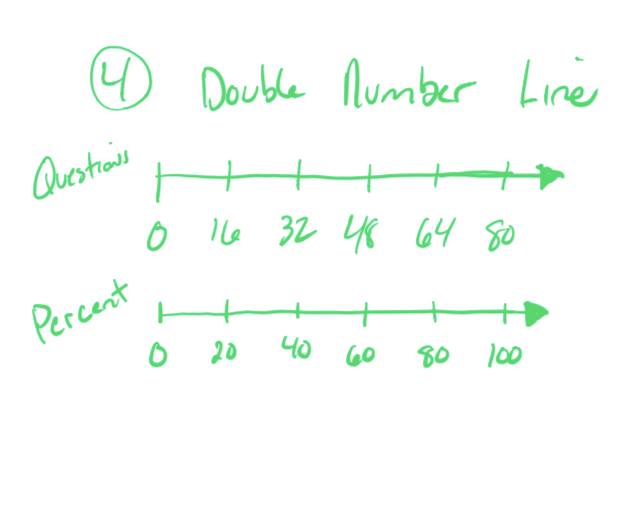 4 Double Number Line
Questions
0 16 32 48 64 80
Percent
0 20 40 60 80 100